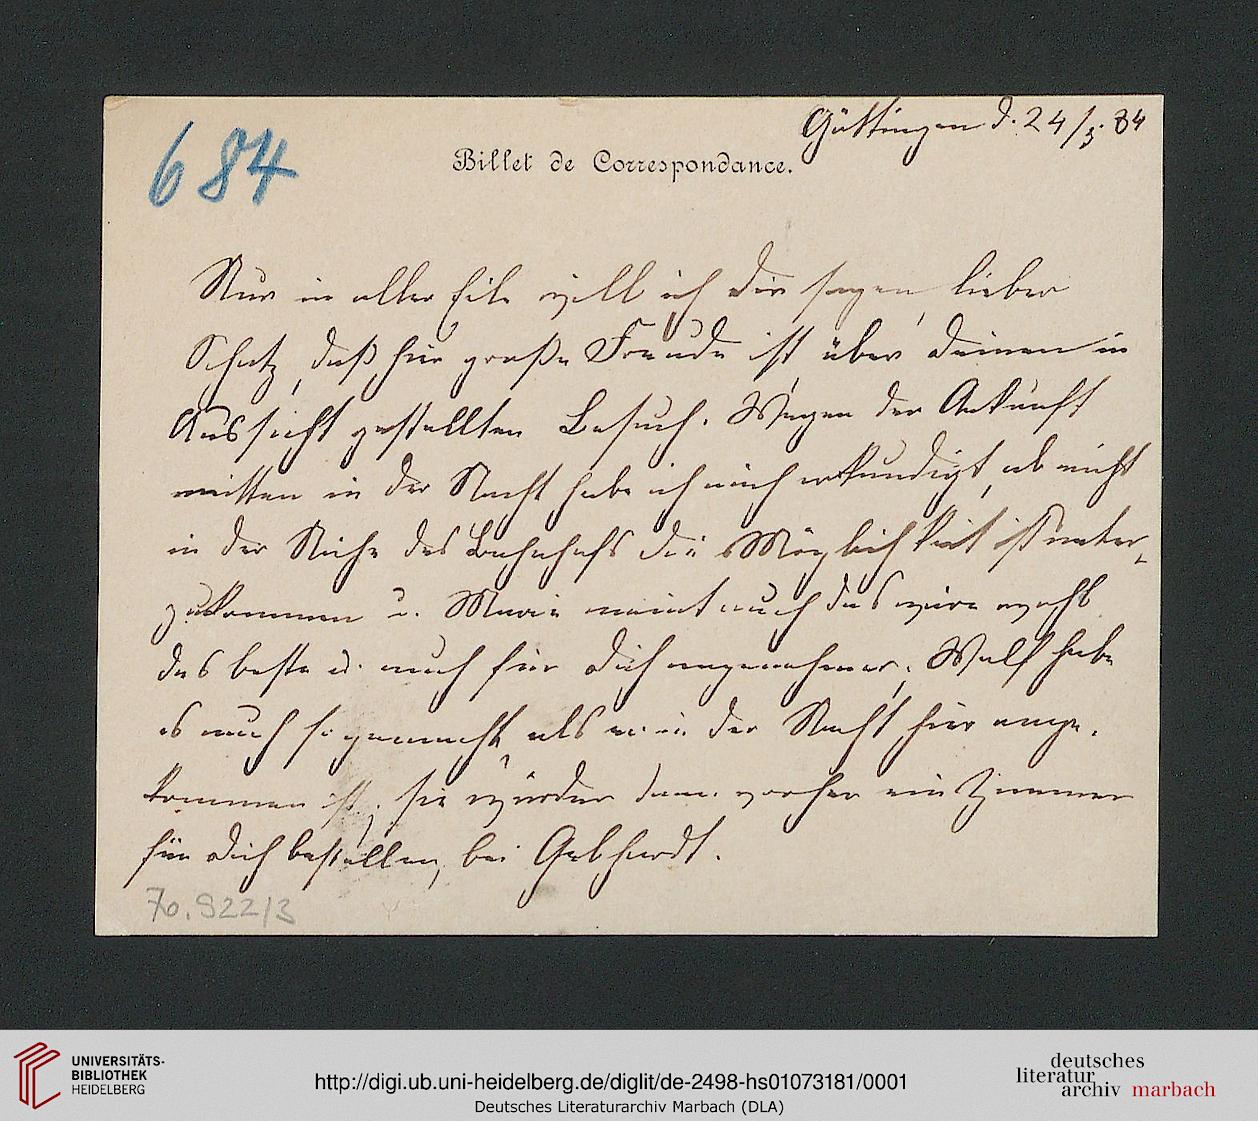 Göttingen d. 24/3. 84
684
Billet de Correspondance.
Nur in aller Eile will ich dir sagen, lieber
Schatz, daß hier große Freude ist über deinen in
Aussicht gestellten Besuch. Wegen der Ankunft
mitten in der Nacht habe ich mich erkundigt, ob nicht
in der Nähe des Bahnhofs die Möglichkeit ist unter-
zukommen u. Marie meint auch das wäre wohl
das beste u. auch für dich angenehmer; Wolf habe
es auch so gemacht, als er in der Nacht hier ange-
kommen ist; sie würden dann vorher ein Zimmer
für dich bestellen, bei Gebhardt.
70.922/3
UNIVERSITÄTS-
BIBLIOTHEK
HEIDELBERG
http://digi.ub.uni-heidelberg.de/diglit/de-2498-hs01073181/0001
Deutsches Literaturarchiv Marbach (DLA)
deutsches
literatur
archiv marbach